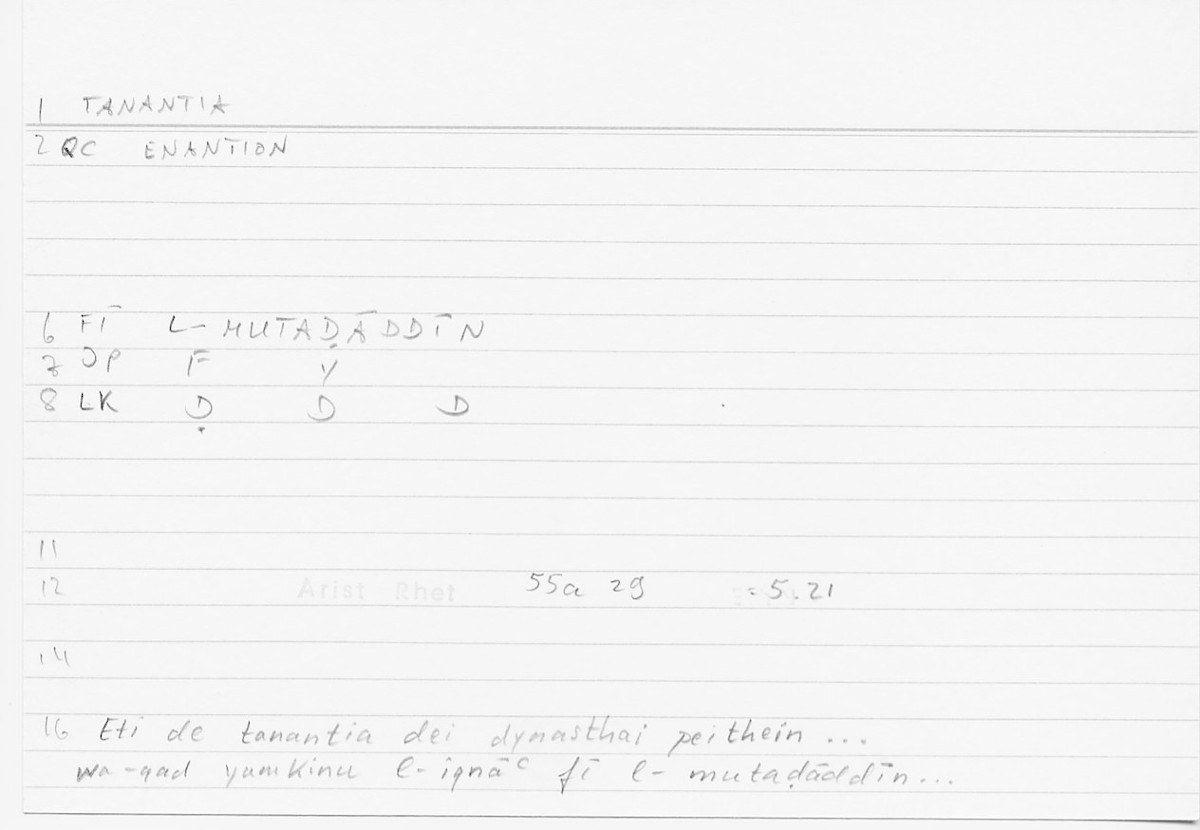 1 TANANTIA
2 QC ENANTION
6 FĪ L-MUTAḌĀDDĪN
7 JP F Y
8 LK Ḍ D D
11
12 Arist Rhet 55a 29 = 5.21
14
16 Eti de tanantia dei dynasthai peithein ...
wa-qad yumkinu l-iqnāᶜ fī l-mutaḍāddīn...